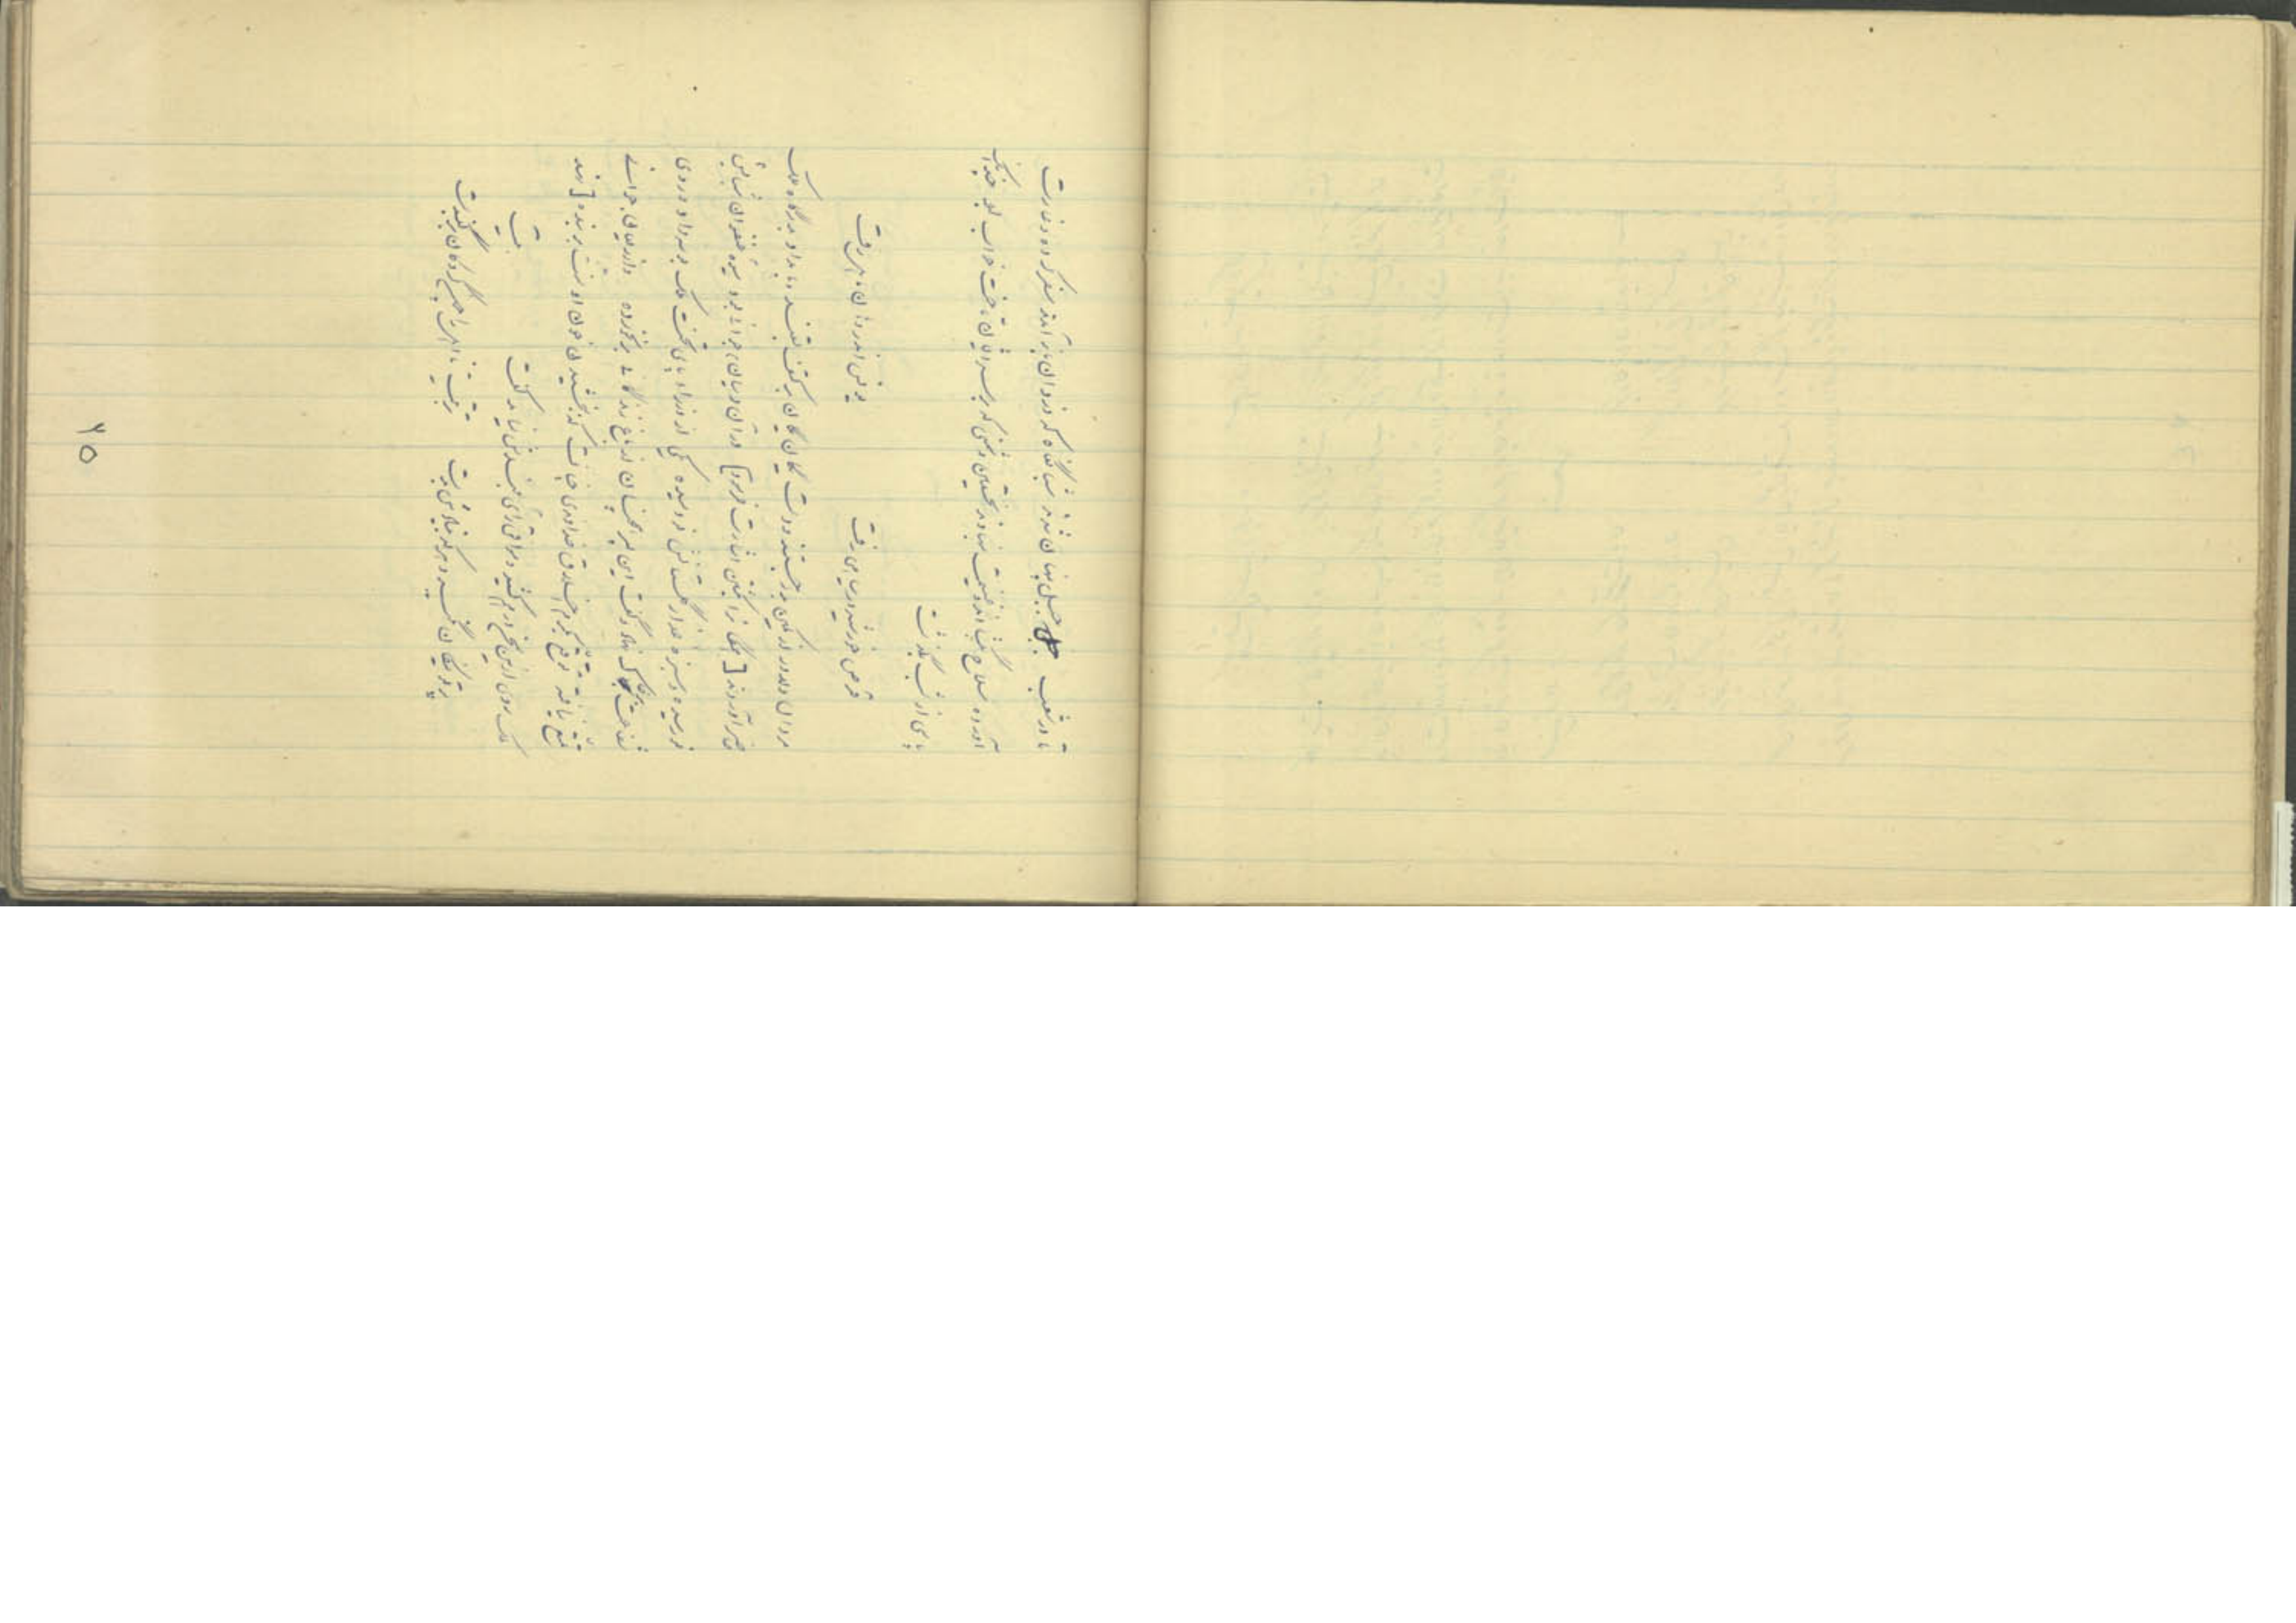 تا در شعب جبل پنهان شدند شبانگاه که دزدان باز آمدند سفر کرده و غارت
آورده سلاح بگشادند و غنیمت بنهادند نخستین دشمنی که بر سر ایشان تاخت خواب بود چندانک
پاسی از شب بگذشت
قرص خورشید در سیاهی رفت یونس اندر دهان ماهی رفت
مردان دلاور از کمین بدر جستند و دست یکان یکان بر کتف بستند و بامداد بدرگاه ملک
حاضر آوردند [همگان را بکشتن اشارت فرمود] در آن میان جوانی بود میوه عنفوان شبابش
نورسیده و سبزه عذار گلستانش نو دمیده یکی از وزراء پای تخت ملک بوسه داد و روی
شفاعت بر خاک نهاد و گفت این پسر همچنان از باغ زندگانی بر نخورده و از ریعان جوانی
تمتع نیافته توقع بکرم و اخلاق خداوندی چنانست که ببخشیدن خون او منت بر بنده [نهد
ملک روی ازین سخن درهم کشید و موافق رأی بلندش نیامد و گفت بیت
پرتو نیکان نگیرد هر که بنیادش بدست تربیت نااهل را چون گردکان بر گنبدست
٢٥